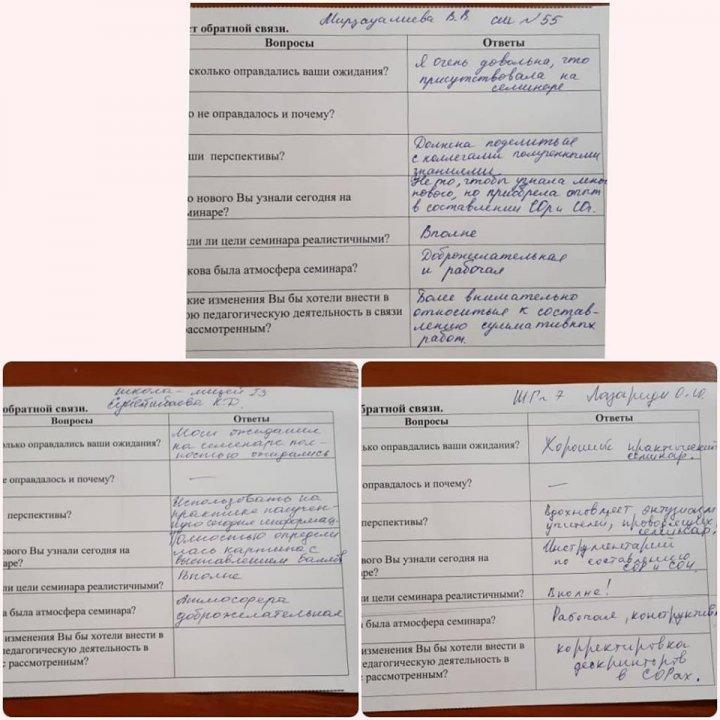 Мирзауалиева В.В. сш №55
ст обратной связи.
Вопросы Ответы
сколько оправдались ваши ожидания?
Я очень довольна, что
присутствовала на
семинаре
о не оправдалось и почему?
ши перспективы?
Должна поделиться
с коллегами полученными
знаниями.
о нового Вы узнали сегодня на
минаре?
Не то, чтобы узнала много
нового, но приобрела опыт
в составлении СОр и СОч.
ыли ли цели семинара реалистичными?
Вполне
кова была атмосфера семинара?
Доброжелательная
и рабочая
кие изменения Вы бы хотели внести в
ою педагогическую деятельность в связи
рассмотренным?
Более внимательно
относиться к состав-
лению сумматив­ных
работ.
школа-лицей 53
К.Д.
обратной связи.
Вопросы Ответы
олько оправдались ваши ожидания?
Мои ожидания
на семинаре пол-
ностью
е оправдалось и почему?
—
перспективы?
Использовать на
практике получен-
ную сегодня информац.
ового Вы узнали сегодня на
аре?
Полностью определи
лась картина с
выставлением баллов
ли цели семинара реалистичными?
Вполне
а была атмосфера семинара?
Атмосфера
доброжелательная
изменения Вы бы хотели внести в
педагогическую деятельность в
с рассмотренным?
ШГ№7 Лазариди О.Ю.
братной связи.
Вопросы Ответы
ько оправдались ваши ожидания?
Хороший практический
семинар.
оправдалось и почему?
—
ерспективы?
Вдохновляет, энтузиазм
учителей, проводящих
семинар.
вого Вы узнали сегодня на
ре?
Инструментарий
по составлению
СОР и СОЧ.
и цели семинара реалистичными?
Вполне!
была атмосфера семинара?
Рабочая, конструктивн
изменения Вы бы хотели внести в
едагогическую деятельность в
с рассмотренным?
корректировка
дескрипторов
в СОРах.